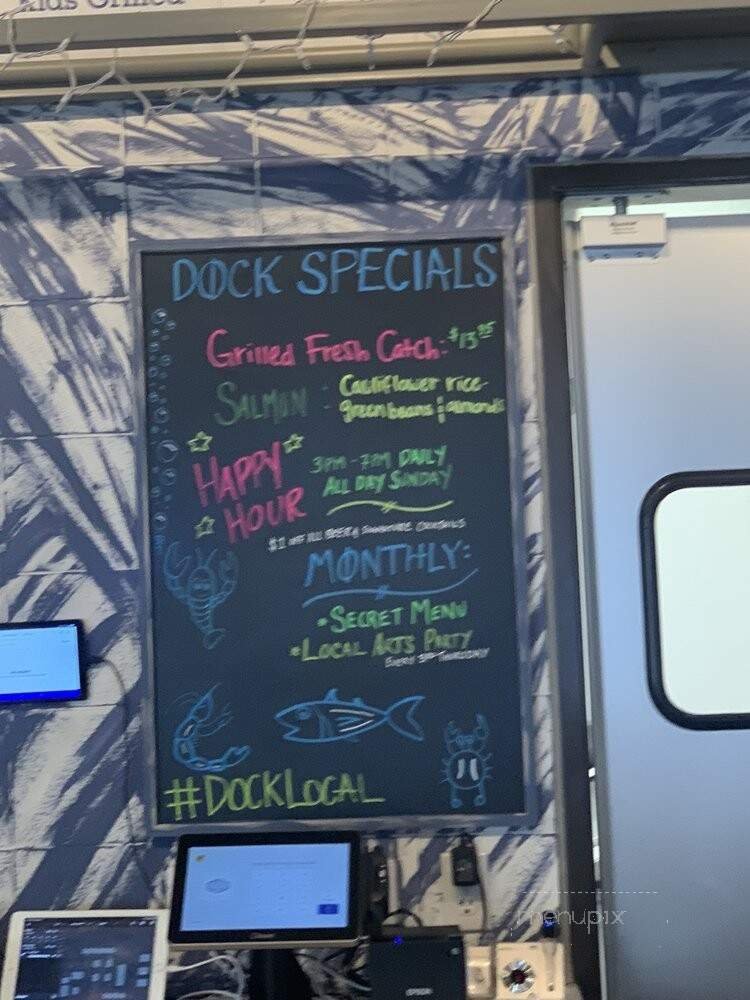 Kids Grilled
DOCK SPECIALS
Grilled Fresh Catch: $13.95
SALMON - Cauliflower rice-
- green beans & almonds
HAPPY HOUR
3PM-7PM DAILY
ALL DAY SUNDAY
$1 OFF ALL BEER & SIGNATURE COCKTAILS
MONTHLY:
• SECRET MENU
• LOCAL ARTS PARTY
EVERY 3RD THURSDAY
#DOCKLOCAL
EPSON
menupix